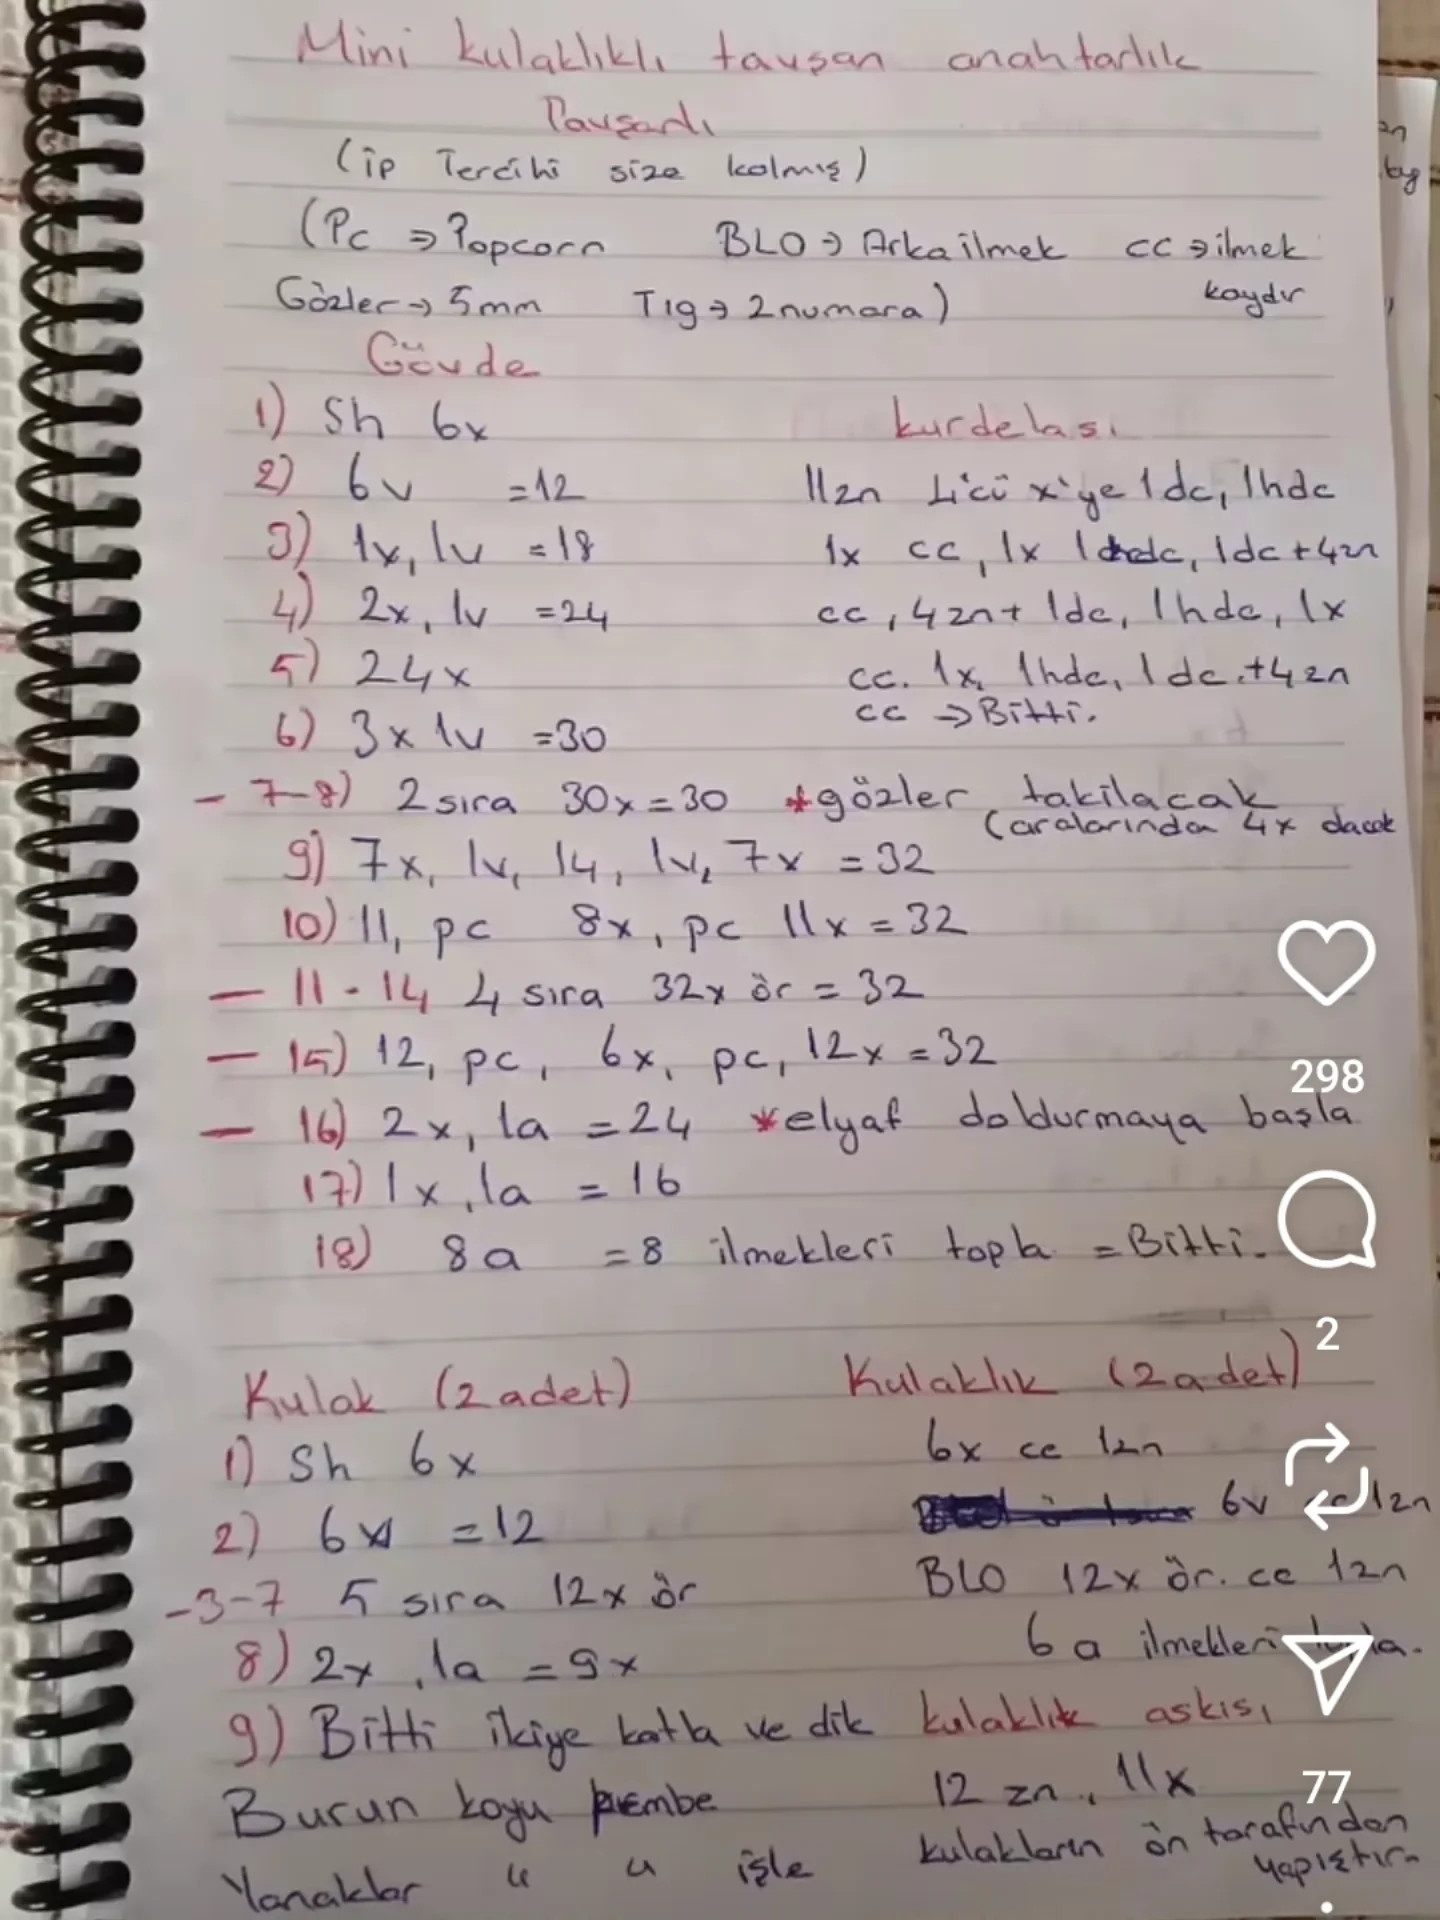 Mini kulaklıklı tavşan anahtarlık
Tavşanlı
(ip Tercihi size kalmış)
(Pc ⇒ Popcorn BLO → Arka ilmek cc → ilmek kaydır
Gözler → 5mm Tıg → 2 numara)
Gövde
1) Sh 6x
2) 6v =12
3) 1x, 1v =18
4) 2x, 1v =24
5) 24x
6) 3x 1v =30
- 7-8) 2 sıra 30x=30 *gözler takilacak
(aralarında 4x olacak
9) 7x, 1v, 14, 1v, 7x =32
10) 11, pc 8x, pc 11x =32
- 11-14 4 sıra 32x ör =32
- 15) 12, pc, 6x, pc, 12x =32
- 16) 2x, 1a =24 *elyaf doldurmaya başla
17) 1x, 1a =16
18) 8a =8 ilmekleri topla =Bitti.
kurdelası
11zn 4'cü x'ye 1dc, 1hdc
1x cc, 1x 1hdc, 1dc+4zn
cc, 4zn+ 1dc, 1hdc, 1x
cc. 1x, 1hdc, 1dc.+4zn
cc → Bitti.
Kulak (2 adet)
1) Sh 6x
2) 6v =12
-3-7 5 sıra 12x ör
8) 2x, 1a =9x
9) Bitti ikiye katla ve dik
Burun koyu pembe
Yanaklar " " işle
Kulaklık (2 adet)
6x cc 1zn
6v 1zn
BLO 12x ör. cc 1zn
6a ilmekleri
kulaklık askısı
12 zn, 11x
kulakların ön tarafından
yapıştır.
298
2
77